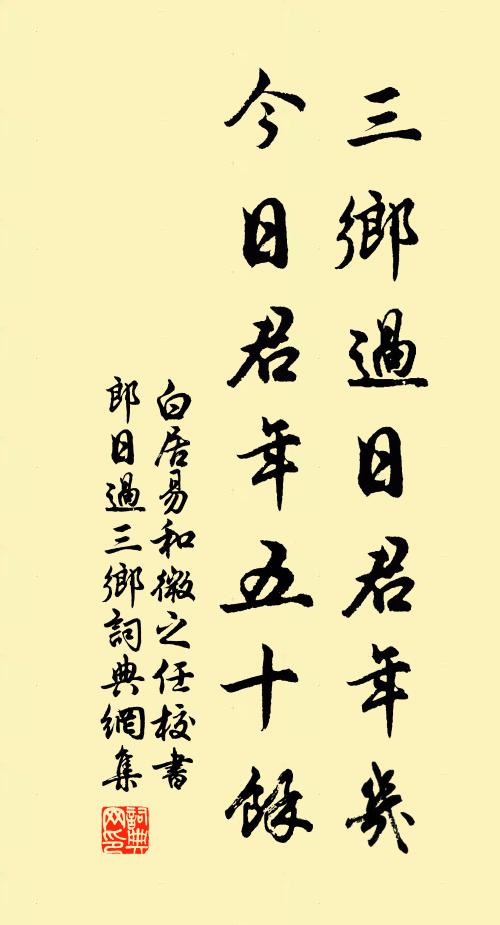 三鄉過日君年幾
今日君年五十餘
白居易和微之任校書
郎日過三鄉詞典網集
詞典
网印